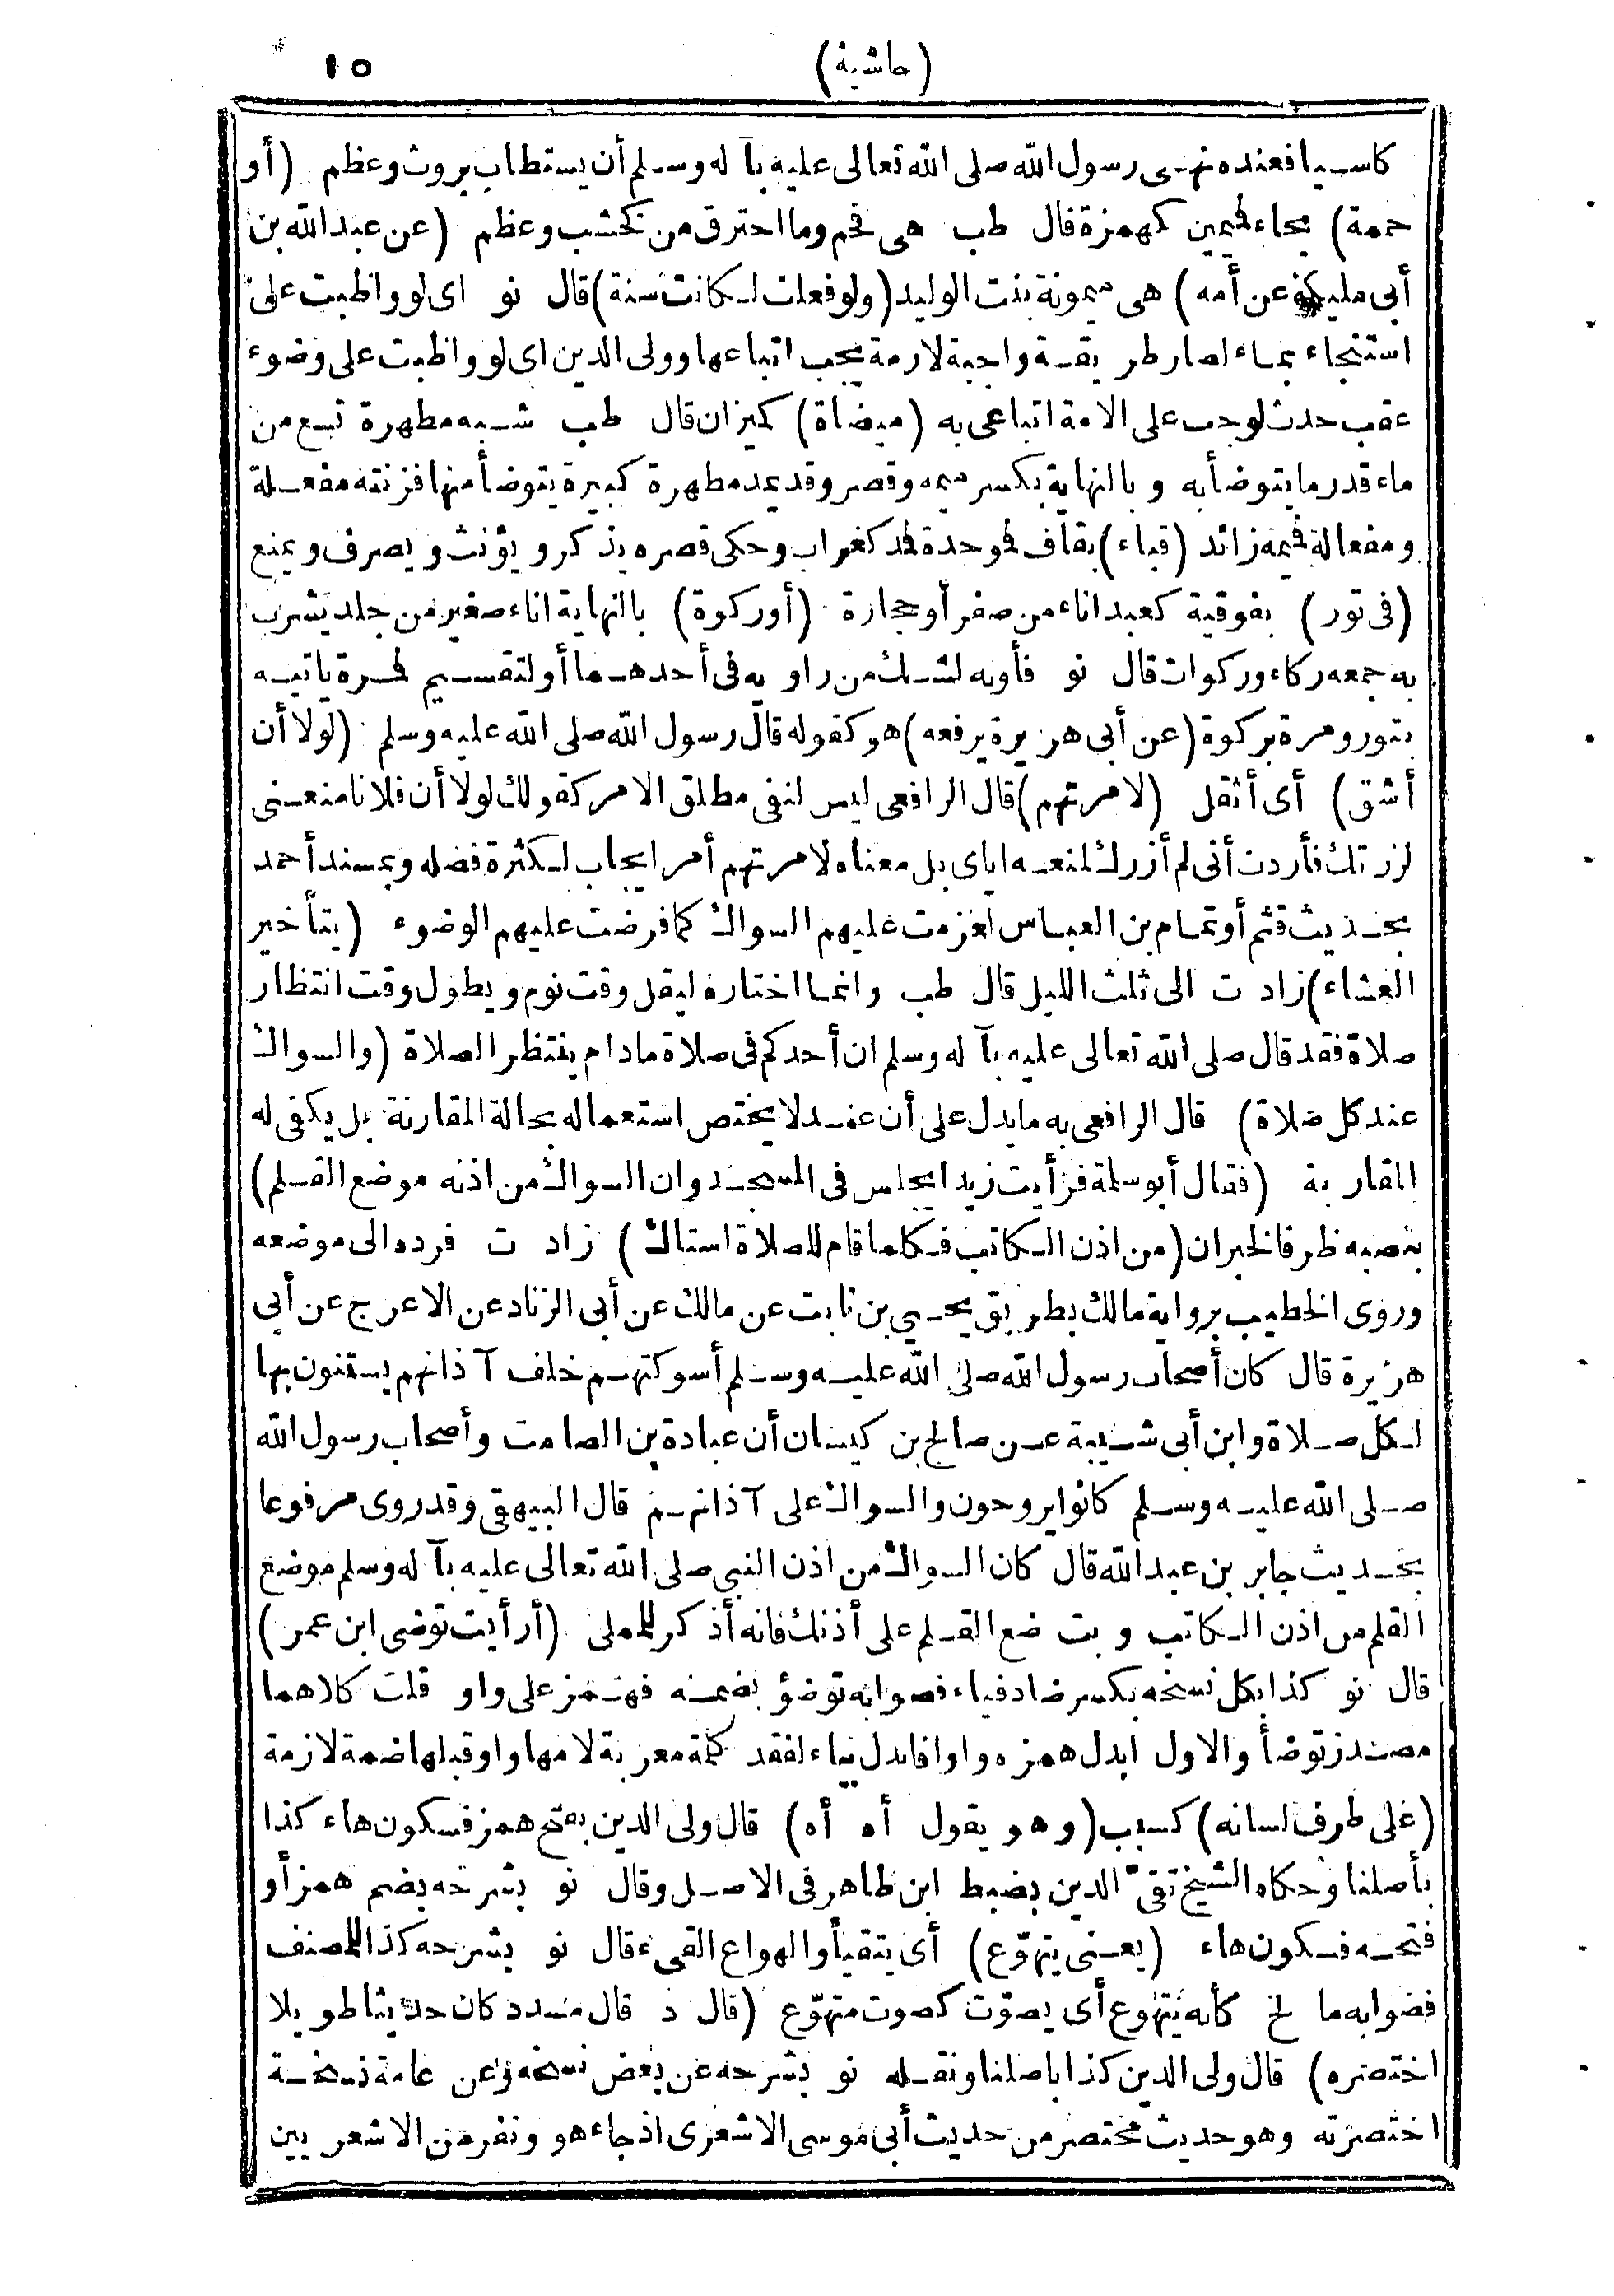 (حاشية)
١٥
كاسيا فعنده نهى رسول الله صلى الله تعالى عليه بآ له وسلم أن يستطاب بروث وعظم (أو
حممة) بحاء فميمين كهمزة قال طب هى فحم وما احترق من كخشب وعظم (عن عبد الله بن
أبى مليكة عن أمه) هى ميمونة بنت الوليد (ولو فعلت لكانت سنة) قال نو اى لو واظبت على
استنجاء بماء لصار طريقة واجبة لازمة يجب اتباعها وولى الدين اى لو واظبت على وضوء
عقب حدث لوجب على الامة اتباعى به (ميضاة) كميزان قال طب شبه مطهرة تسع من
ماء قدر ما يتوضأ به وبالنهاية بكسر ميمه وقصر وقد يمد مطهرة كبيرة يتوضأ منها فزنته مفعلة
ومفعالة فميمه زائد (قباء) بقاف فموحدة فمد كغراب وحكى قصره يذكر ويؤنث ويصرف ويمنع
(فى تور) بفوقية كعبد اناء من صفر أو حجارة (أو ركوة) بالنهاية اناء صغير من جلد يشرب
به جمعه ركاء وركوات قال نو فأوبه لشك من راويه فى أحدهما أو لتقسيم فمرة يا تيه
بتور ومرة بركوة (عن أبى هريرة يرفعه) هو كقوله قال رسول الله صلى الله عليه وسلم (لولا أن
أشق) أى أثقل (لامرتهم) قال الرافعى ليس لنفى مطلق الامر كقولك لولا أن فلانا منعنى
لزرتك فأردت أنى لم أزرك لمنعه اياى بل معناه لامرتهم أمر ايجاب لكثرة فضله وبمسند أحمد
بحديث قثم أو تمام بن العباس لعزمت عليهم السواك كما فرضت عليهم الوضوء (بتأخير
العشاء) زاد ت الى ثلث الليل قال طب وانما اختاره ليقل وقت نوم ويطول وقت انتظار
صلاة فقد قال صلى الله تعالى عليه بآ له وسلم ان أحدكم فى صلاة مادام ينتظر الصلاة (والسواك
عند كل صلاة) قال الرافعى به ما يدل على أن عند لا يختص استعماله بحالة المقارنة بل يكفى له
المقاربة (فقال أبو سلمة فرأيت زيدا يجلس فى المسجد وان السواك من اذنه موضع القلم)
بنصبه ظرفا لخبران (من اذن الكاتب فكلما قام للصلاة استاك) زاد ت فرده الى موضعه
وروى الخطيب برواية مالك بطريق يحيى بن ثابت عن مالك عن أبى الزناد عن الاعرج عن أبى
هريرة قال كان أصحاب رسول الله صلى الله عليه وسلم أسوكتهم خلف آذانهم يستنون بها
لكل صلاة وابن أبى شيبة عن صالح بن كيسان أن عبادة بن الصامت وأصحاب رسول الله
صلى الله عليه وسلم كانوا يروحون والسواك على آذانهم قال البيهقى وقد روى مرفوعا
بحديث جابر بن عبد الله قال كان السواك من اذن النبى صلى الله تعالى عليه بآ له وسلم موضع
القلم من اذن الكاتب وبت ضع القلم على أذنك فانه أذكر للملى (أرأيت توضى ابن عمر)
قال نو كذا بكل نسخه بكسر ضاد فياء فصوابه توضؤ بضمه فهمز على واو قلت كلاهما
مصدر توضأ والاول ابدل همزه واوا فابدل بياء لفقد كلمة معربة لامها واو قبلها ضمة لازمة
(على طرف لسانه) كسبب (وهو يقول أه أه) قال ولى الدين بفتح همز فسكون هاء كذا
بأصلنا وحكاه الشيخ تقىّ الدين بضبط ابن طاهر فى الاصل وقال نو بشرحه بضم همز أو
فتحه فسكون هاء (يعنى يتهوّع) أى يتقيأ والهواع القىء قال نو بشرحه كذا للمصنف
فصوابه ما لخ كأنه يتهوع أى يصوّت كصوت متهوّع (قال د قال مسدد كان حديثا طويلا
اختصره) قال ولى الدين كذا باصلنا ونقله نو بشرحه عن بعض نسخه وعن عامة نسخة
اختصرته وهو حديث مختصر من حديث أبى موسى الاشعرى اذ جاء هو ونفر من الاشعريين